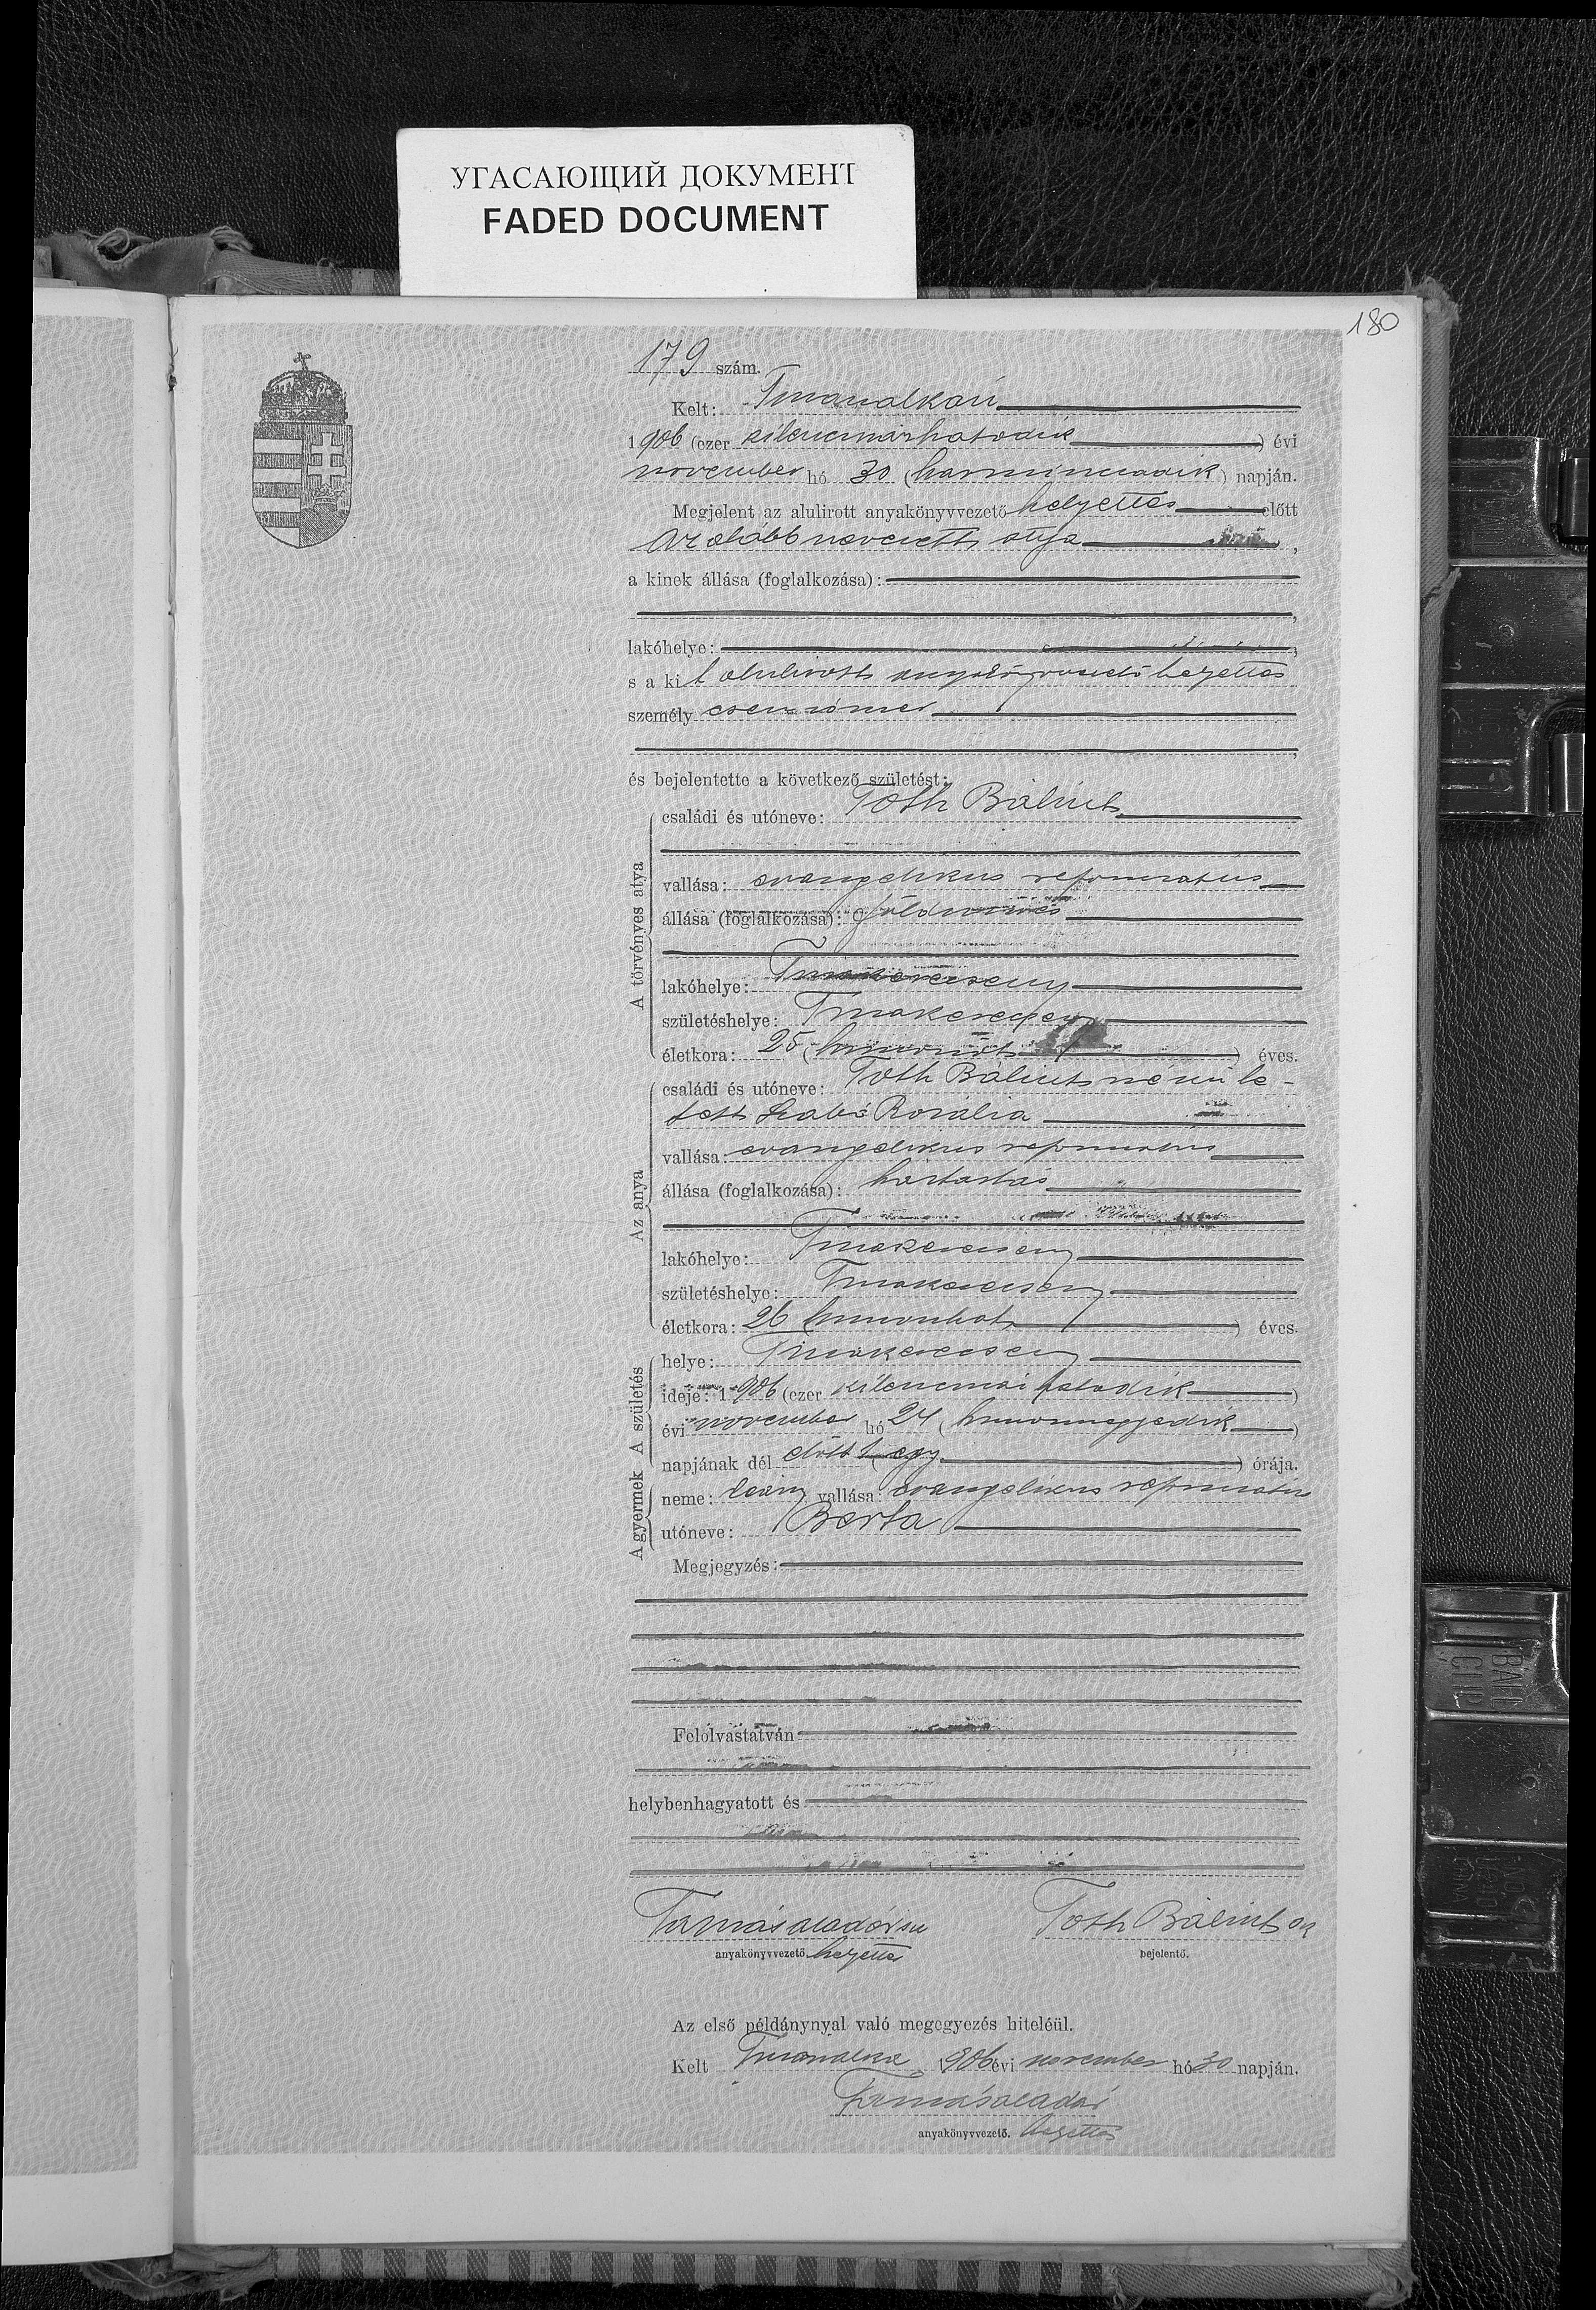 УГАСАЮЩИЙ ДОКУМЕНТ
FADED DOCUMENT
180
179 szám.
Kelt: Tiszaszalka
1906 (ezer kilencszázhatodik) évi
november hó 30 (harmincadik) napján.
Megjelent az alulirott anyakönyvvezető helyettes előtt
az alább nevezett atya,
a kinek állása (foglalkozása):
lakóhelye:
s a ki t alulirott anyakönyvvezető helyettes
személy esen ismer
és bejelentette a következő születést:
A törvényes atya
családi és utóneve: Tóth Bálint
vallása: evangelikus református
állása (foglalkozása): földmives
lakóhelye: Tiszakerecseny
születéshelye: Tiszakerecseny
életkora: 25 (huszonöt) éves.
Az anya
családi és utóneve: Tóth Bálintné szüle-
tett Szabó Rozália
vallása: evangelikus református
állása (foglalkozása): háztartás
lakóhelye: Tiszakerecseny
születéshelye: Tiszakerecseny
életkora: 26 huszonhat) éves.
A születés
helye: Tiszakerecseny
ideje: 1906 (ezer kilencszázhatodik)
évi november hó 24 (huszonnegyedik)
napjának dél előtt 1 (egy) órája.
A gyermek
neme: leány vallása: evangelikus református
utóneve: Berta
Megjegyzés:
Felolvastatván
helybenhagyatott és
Tamás Aladár Tóth Bálint
anyakönyvvezető helyettes bejelentő.
Az első példánynyal való megegyezés hiteléül.
Kelt 1906 évi november hó 30 napján.
Tamás Aladár
anyakönyvvezető. helyettes